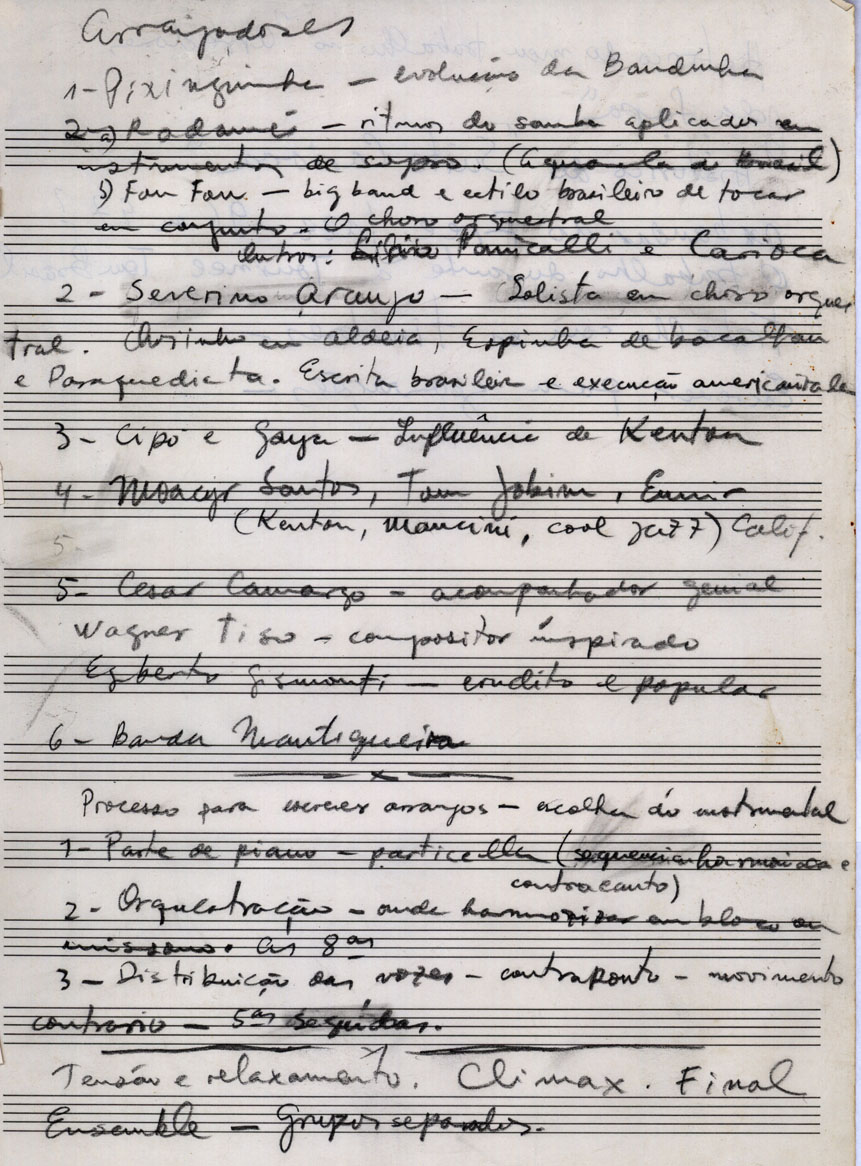 Arranjadores
1 - Pixinguinha - evolução da Bandinha
2 - a) Radamés - ritmos do samba aplicados em
instrumentos de sopro. (Aquarela do Brasil)
b) Fon Fon - big band e estilo brasileiro de tocar
em conjunto. O choro orquestral
Outros: Lírio Panicalli e Carioca
2 - Severino Araujo - Solista em choro orques
tral. Chorinho em aldeia, Espinha de bacalhau
e Paraquedista. Escrita brasileira e execução americanizada
3 - Cipó e Gaya - Influência de Kenton
4 - Moacyr Santos, Tom Jobim, Eumir
(Kenton, Mancini, cool jazz) Calif.
5 -
5 - Cesar Camargo - acompanhador genial
Wagner Tiso - compositor inspirado
Egberto Gismonti - erudito e popular
6 - Banda Mantiqueira
x
Processo para escrever arranjos - escolha do instrumental
1 - Parte de piano - particella (sequencia harmonica e
contracanto)
2 - Orquestração - onde harmonizar em bloco ou
unissono. As 8as
3 - Distribuição das vozes - contraponto - movimento
contrario - 5as seguidas.
Tensão e relaxamento. Climax. Final
Ensamble - Grupos separados.